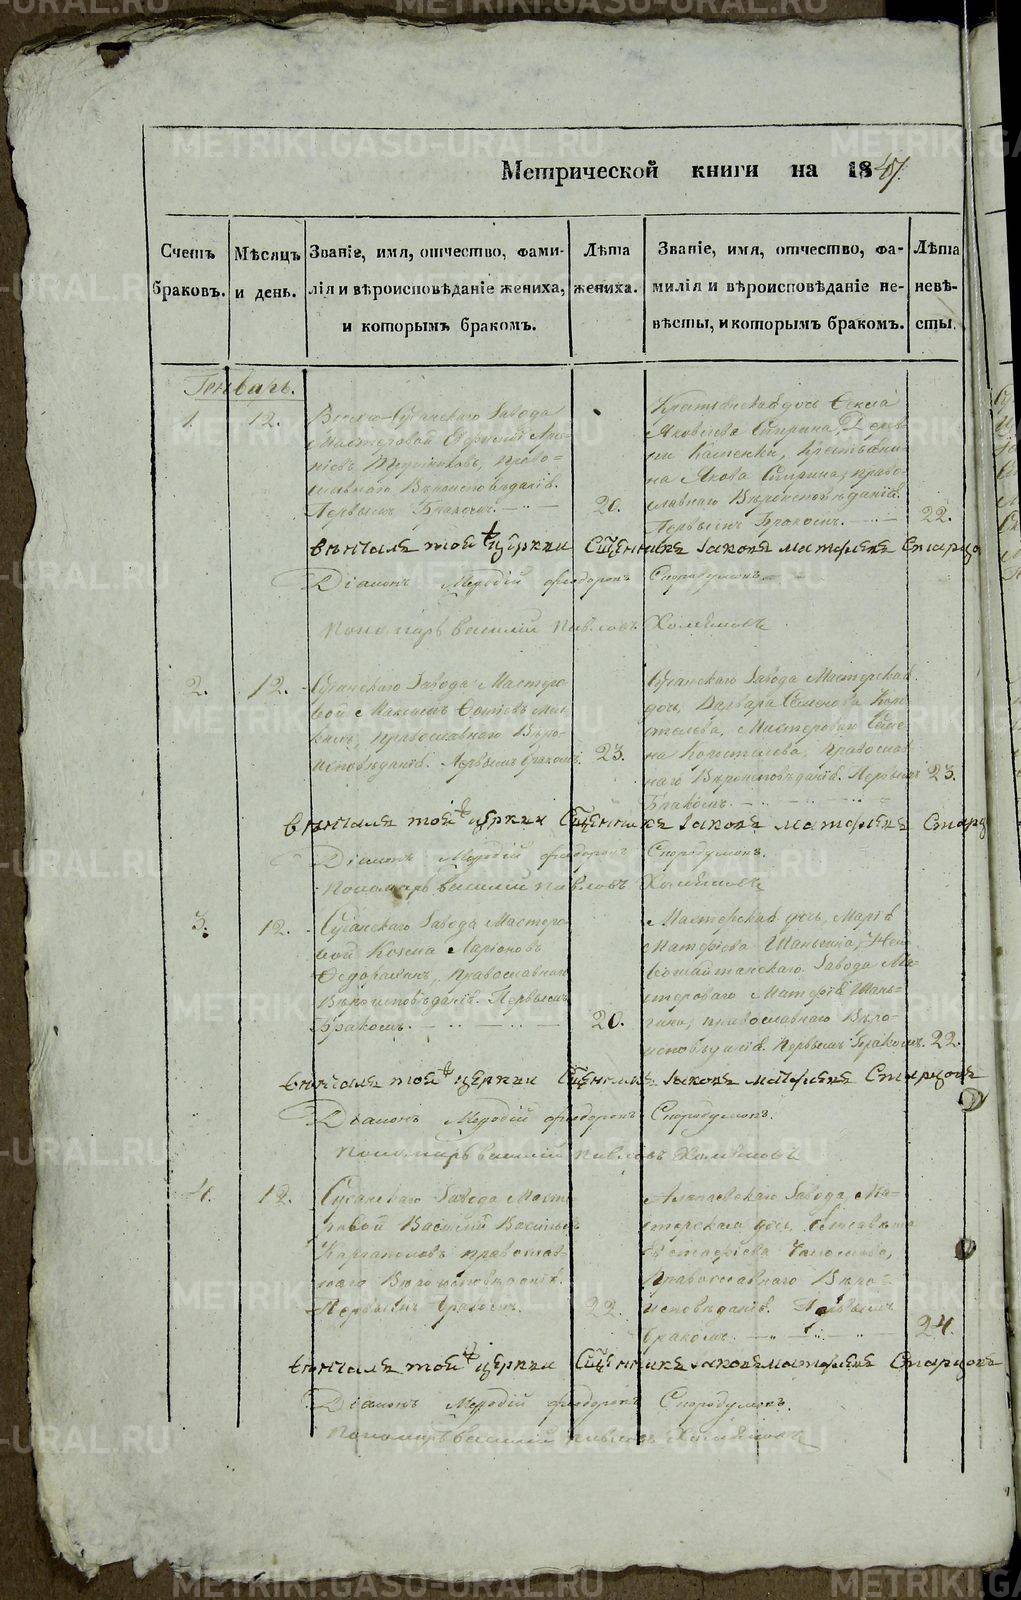 Метрической книги на 1847.
Счетъ браковъ.
Мѣсяцъ и день.
Званіе, имя, отчество, фами-
лія и вѣроисповѣданіе жениха,
и которымъ бракомъ.
Лѣта жениха.
Званіе, имя, отчество, фа-
милія и вѣроисповѣданіе не-
вѣсты, и которымъ бракомъ.
Лѣта невѣ-
сты.
Генварь.
1.
12.
Сусанскаго Завода
Мастеровой
право-
славнаго Вѣроисповѣданія.
Первымъ бракомъ.
20.
Крестьянская дочь Фекла
Яковлева Спирина, Дерев-
ни Каменки, Крестьяни-
на Якова Спирина, право-
славнаго Вѣроисповѣданія.
Первымъ бракомъ.
22.
вѣнчалъ той церкви Сщенникъ Іаковъ Матфеевъ Старцо
Діаконъ Меѳодій Ѳеодоровъ Спородумовъ.
Пономарь Василий Павловъ Хомяковъ.
2.
12.
Сусанскаго Завода Мастеро-
вой Максимъ
православнаго Вѣро-
исповѣданія. Первымъ бракомъ.
23.
Сусанскаго Завода Мастерская
дочь, Варвара Семенова Коро-
сталева, Мастероваго Семе-
на Коросталева, православ-
наго Вѣроисповѣданія. Первымъ
бракомъ.
23.
вѣнчалъ той церкви Сщенникъ Іаковъ Матфеевъ Старц
Діаконъ Меѳодій Ѳеодоровъ Спородумовъ.
Пономарь Василий Павловъ Хомяковъ
3.
12.
Сусанскаго Завода Мастеро-
вой Козма Ларіоновъ
православнаго
Вѣроисповѣданія. Первымъ
бракомъ.
20.
Мастерская дочь, Марія
Матфіева Шаньгина, Ней-
вошайтанскаго Завода Ма-
стероваго Матфія Шань-
гина, православнаго Вѣро-
исповѣданія. Первымъ бракомъ.
22.
вѣнчалъ той церкви Сщенникъ Іаковъ Матфеевъ Старцовъ
Діаконъ Меѳодій Ѳеодоровъ Спородумовъ.
Пономарь Василий Павловъ Хомяковъ
4.
12.
Сусанскаго Завода Масте-
ровой Василій Васильевъ
Каргаполовъ православ-
наго Вѣроисповѣданія.
Первымъ бракомъ.
22.
Алапаевскаго Завода, Ма-
стерская дочь, Елисавета
православнаго Вѣро-
исповѣданія. Первымъ
бракомъ.
24.
вѣнчалъ той церкви Сщенникъ Іаковъ Матфеевъ Старцовъ
Діаконъ Меѳодій Ѳеодоровъ Спородумовъ.
Пономарь Василий Павловъ Хомяковъ
METRIKI.GASO-URAL.RU